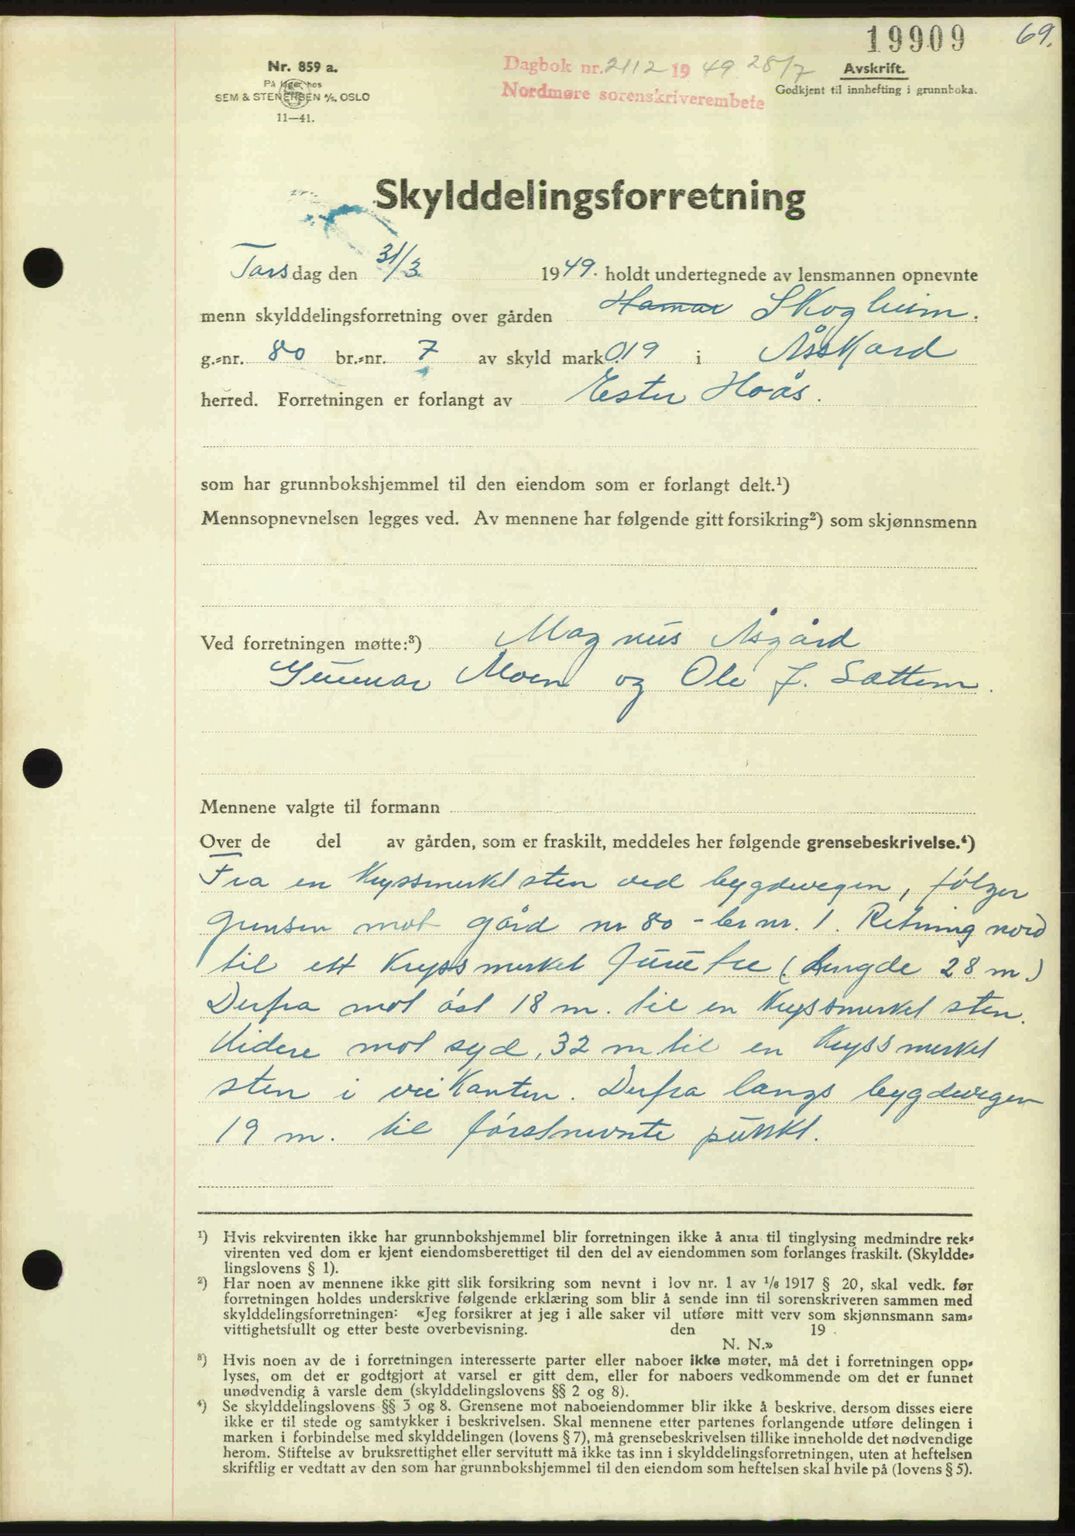 19909
69.
Nr. 859 a.
På lager hos
SEM & STENERSEN A/S. OSLO
11—41.
Dagbok nr. 2112 1949 28/7
Nordmøre sorenskriverembete
Avskrift.
Godkjent til innhefting i grunnboka.
Skylddelingsforretning
Torsdag den 31/3 1949. holdt undertegnede av lensmannen opnevnte
menn skylddelingsforretning over gården Hamar Skogheim.
g.-nr. 80 br.-nr. 7 av skyld mark 0.19 i Åsskard
herred. Forretningen er forlangt av Ester Hoås.
som har grunnbokshjemmel til den eiendom som er forlangt delt.¹)
Mennsopnevnelsen legges ved. Av mennene har følgende gitt forsikring²) som skjønnsmenn
Ved forretningen møtte:³) Magnus Åsgård
Gunnar Moen og Ole J. Sættem.
Mennene valgte til formann
Over de del av gården, som er fraskilt, meddeles her følgende grensebeskrivelse.⁴)
Fra en Kryssmerket sten ved bygdevegen, følger
grensen mot gård nr 80 - br nr. 1. Retning nord
til ett Kryssmerket furutre (Lengde 28 m.)
Derfra mot øst 18 m. til en Kryssmerket sten.
Videre mot syd, 32 m til en Kryssmerket
sten i veikanten. Derfra langs bygdevegen
19 m. til førstnevnte punkt.
¹) Hvis rekvirenten ikke har grunnbokshjemmel blir forretningen ikke å anta til tinglysing medmindre rek-
virenten ved dom er kjent eiendomsberettiget til den del av eiendommen som forlanges fraskilt. (Skyldde-
lingslovens § 1).
²) Har noen av mennene ikke gitt slik forsikring som nevnt i lov nr. 1 av 1/6 1917 § 20, skal vedk. før
forretningen holdes underskrive følgende erklæring som blir å sende inn til sorenskriveren sammen med
skylddelingsforretningen: «Jeg forsikrer at jeg i alle saker vil utføre mitt verv som skjønnsmann sam-
vittighetsfullt og etter beste overbevisning. den 19 .
N. N.»
³) Hvis noen av de i forretningen interesserte parter eller naboer ikke møter, må det i forretningen opp-
lyses, om det er godtgjort at varsel er gitt dem, eller for naboers vedkommende om det er funnet
unødvendig å varsle dem (skylddelingslovens §§ 2 og 8).
⁴) Se skylddelingslovens §§ 3 og 8. Grensene mot naboeiendommer blir ikke å beskrive, dersom disses eiere
ikke er til stede og samtykker i beskrivelsen. Skal mennene etter partenes forlangende utføre delingen i
marken i forbindelse med skylddelingen (lovens § 7), må grensebeskrivelsen tillike inneholde det nødvendige
herom. Stiftelse av bruksrettighet eller servitutt må ikke tas inn i skylddelingsforretningen, uten at heftelsen
skriftlig er vedtatt av den som har grunnbokshjemmel til den eiendom som heftelsen skal hvile på (lovens § 5).